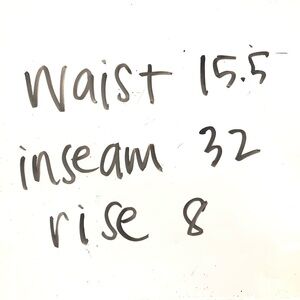 Waist 15.5
inseam 32
rise 8